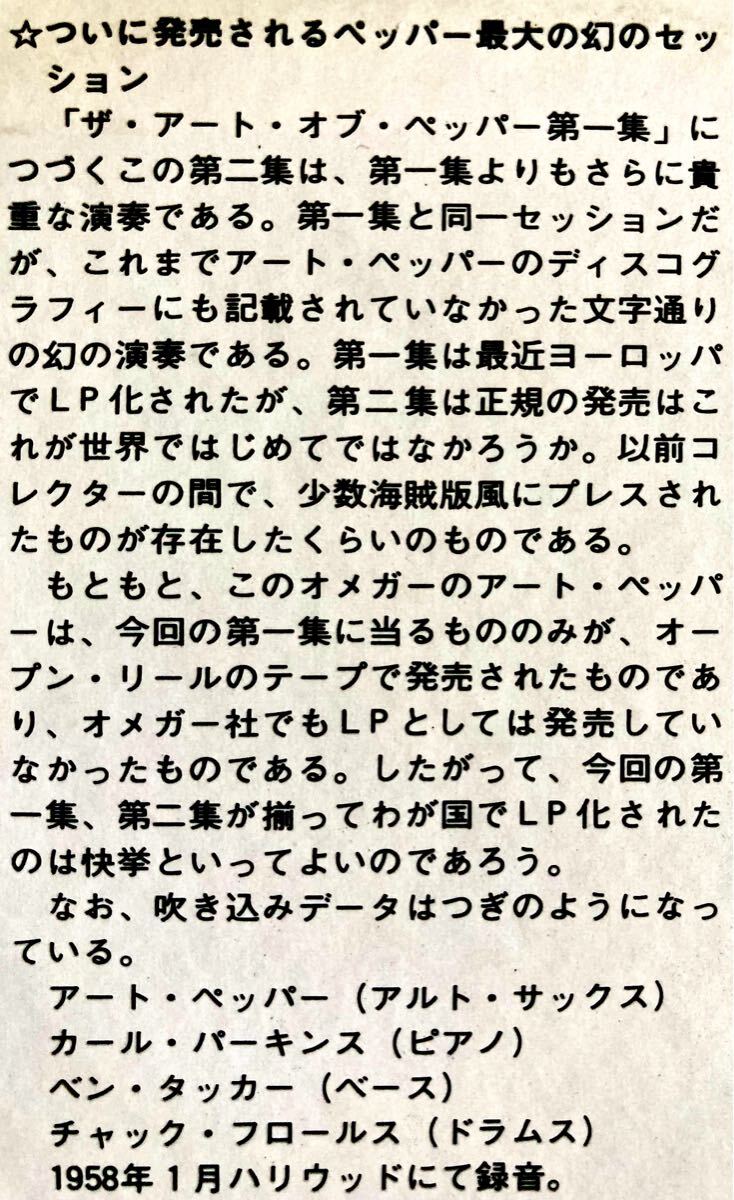 ☆ついに発売されるペッパー最大の幻のセッ
ション
「ザ・アート・オブ・ペッパー第一集」に
つづくこの第二集は、第一集よりもさらに貴
重な演奏である。第一集と同一セッションだ
が、これまでアート・ペッパーのディスコグ
ラフィーにも記載されていなかった文字通り
の幻の演奏である。第一集は最近ヨーロッパ
でLP化されたが、第二集は正規の発売はこ
れが世界ではじめてではなかろうか。以前コ
レクターの間で、少数海賊版風にプレスされ
たものが存在したくらいのものである。
もともと、このオメガーのアート・ペッパ
ーは、今回の第一集に当るもののみが、オー
プン・リールのテープで発売されたものであ
り、オメガー社でもLPとしては発売してい
なかったものである。したがって、今回の第
一集、第二集が揃ってわが国でLP化された
のは快挙といってよいのであろう。
なお、吹き込みデータはつぎのようになっ
ている。
アート・ペッパー(アルト・サックス)
カール・パーキンス(ピアノ)
ベン・タッカー(ベース)
チャック・フロールス(ドラムス)
1958年1月ハリウッドにて録音。